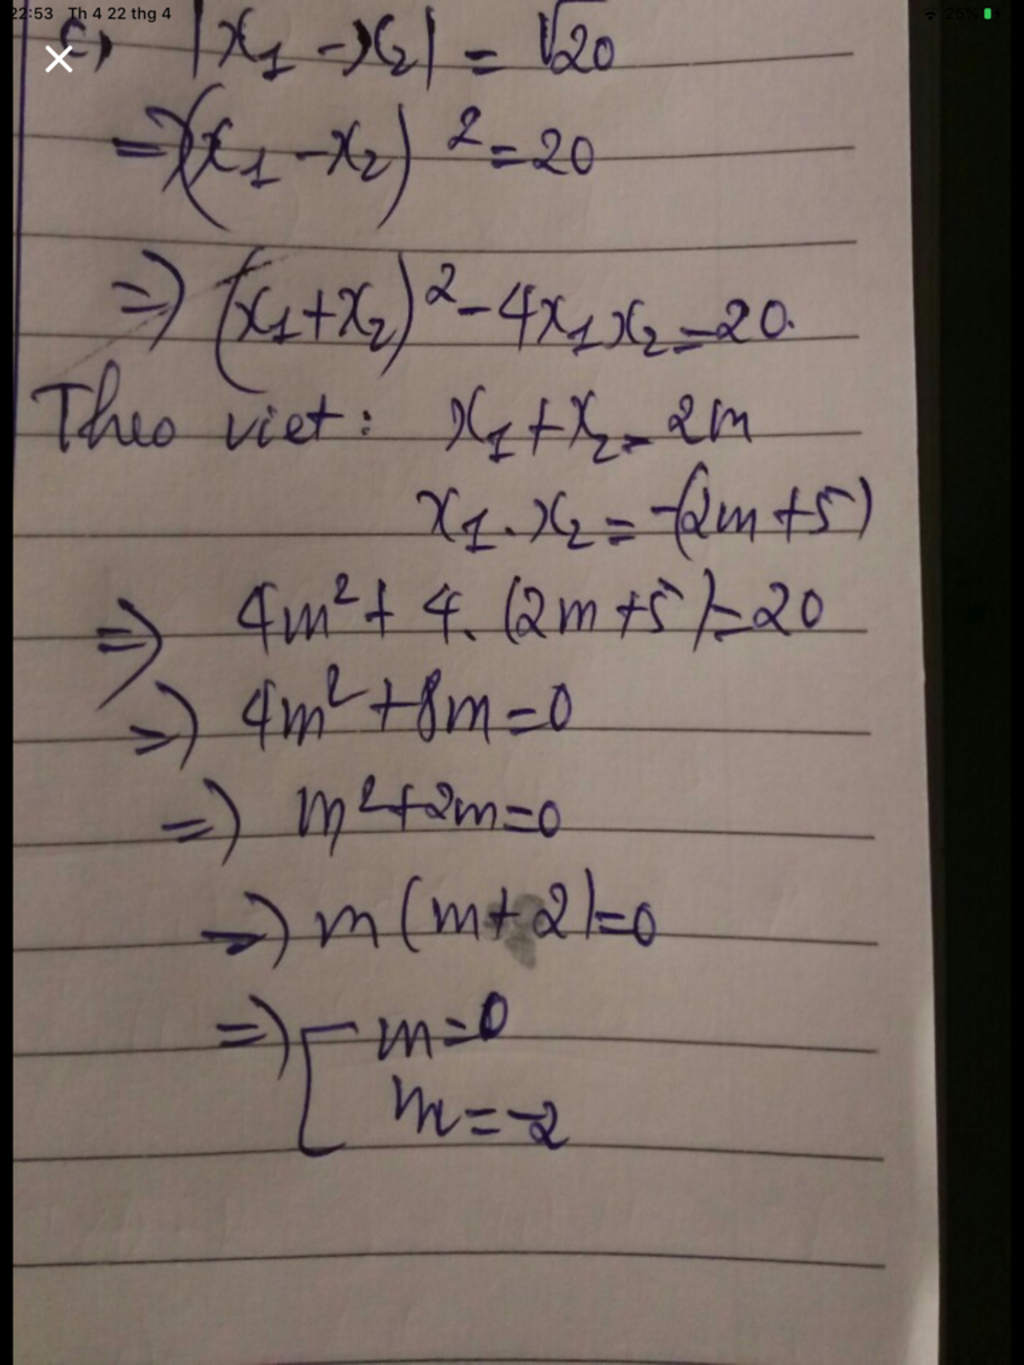 22:53 Th 4 22 thg 4 25%
c, |x₁ - x₂| = √20
=> (x₁ - x₂)² = 20
=> (x₁ + x₂)² - 4x₁x₂ = 20.
Theo viet: x₁ + x₂ = 2m
x₁ . x₂ = -(2m + 5)
=> 4m² + 4. (2m + 5) = 20
=> 4m² + 8m = 0
=> m² + 2m = 0
=> m (m + 2) = 0
=> [ m = 0
m = -2